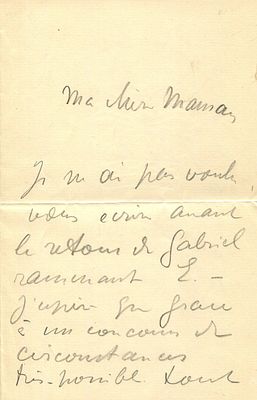 Ma chère Maman
Je n'ai pas voulu
vous écrire avant
le retour de Gabriel
ramenant E. –
J'espère que grace
à un concours de
circonstances
très possible tout